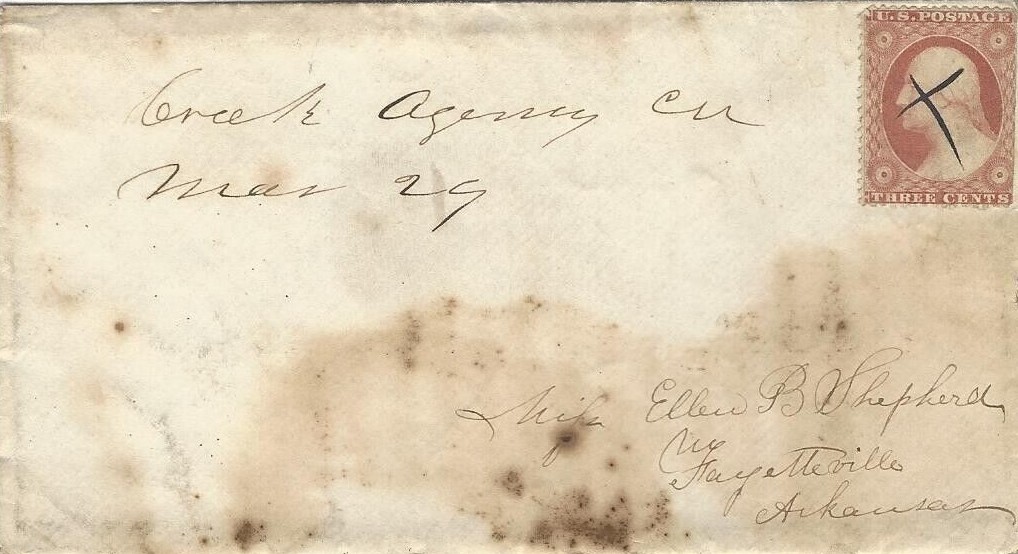 U.S. POSTAGE
THREE CENTS
Creek Agency CN
Mar 29
Miss Ellen B Shepherd
Fayetteville
Arkansas